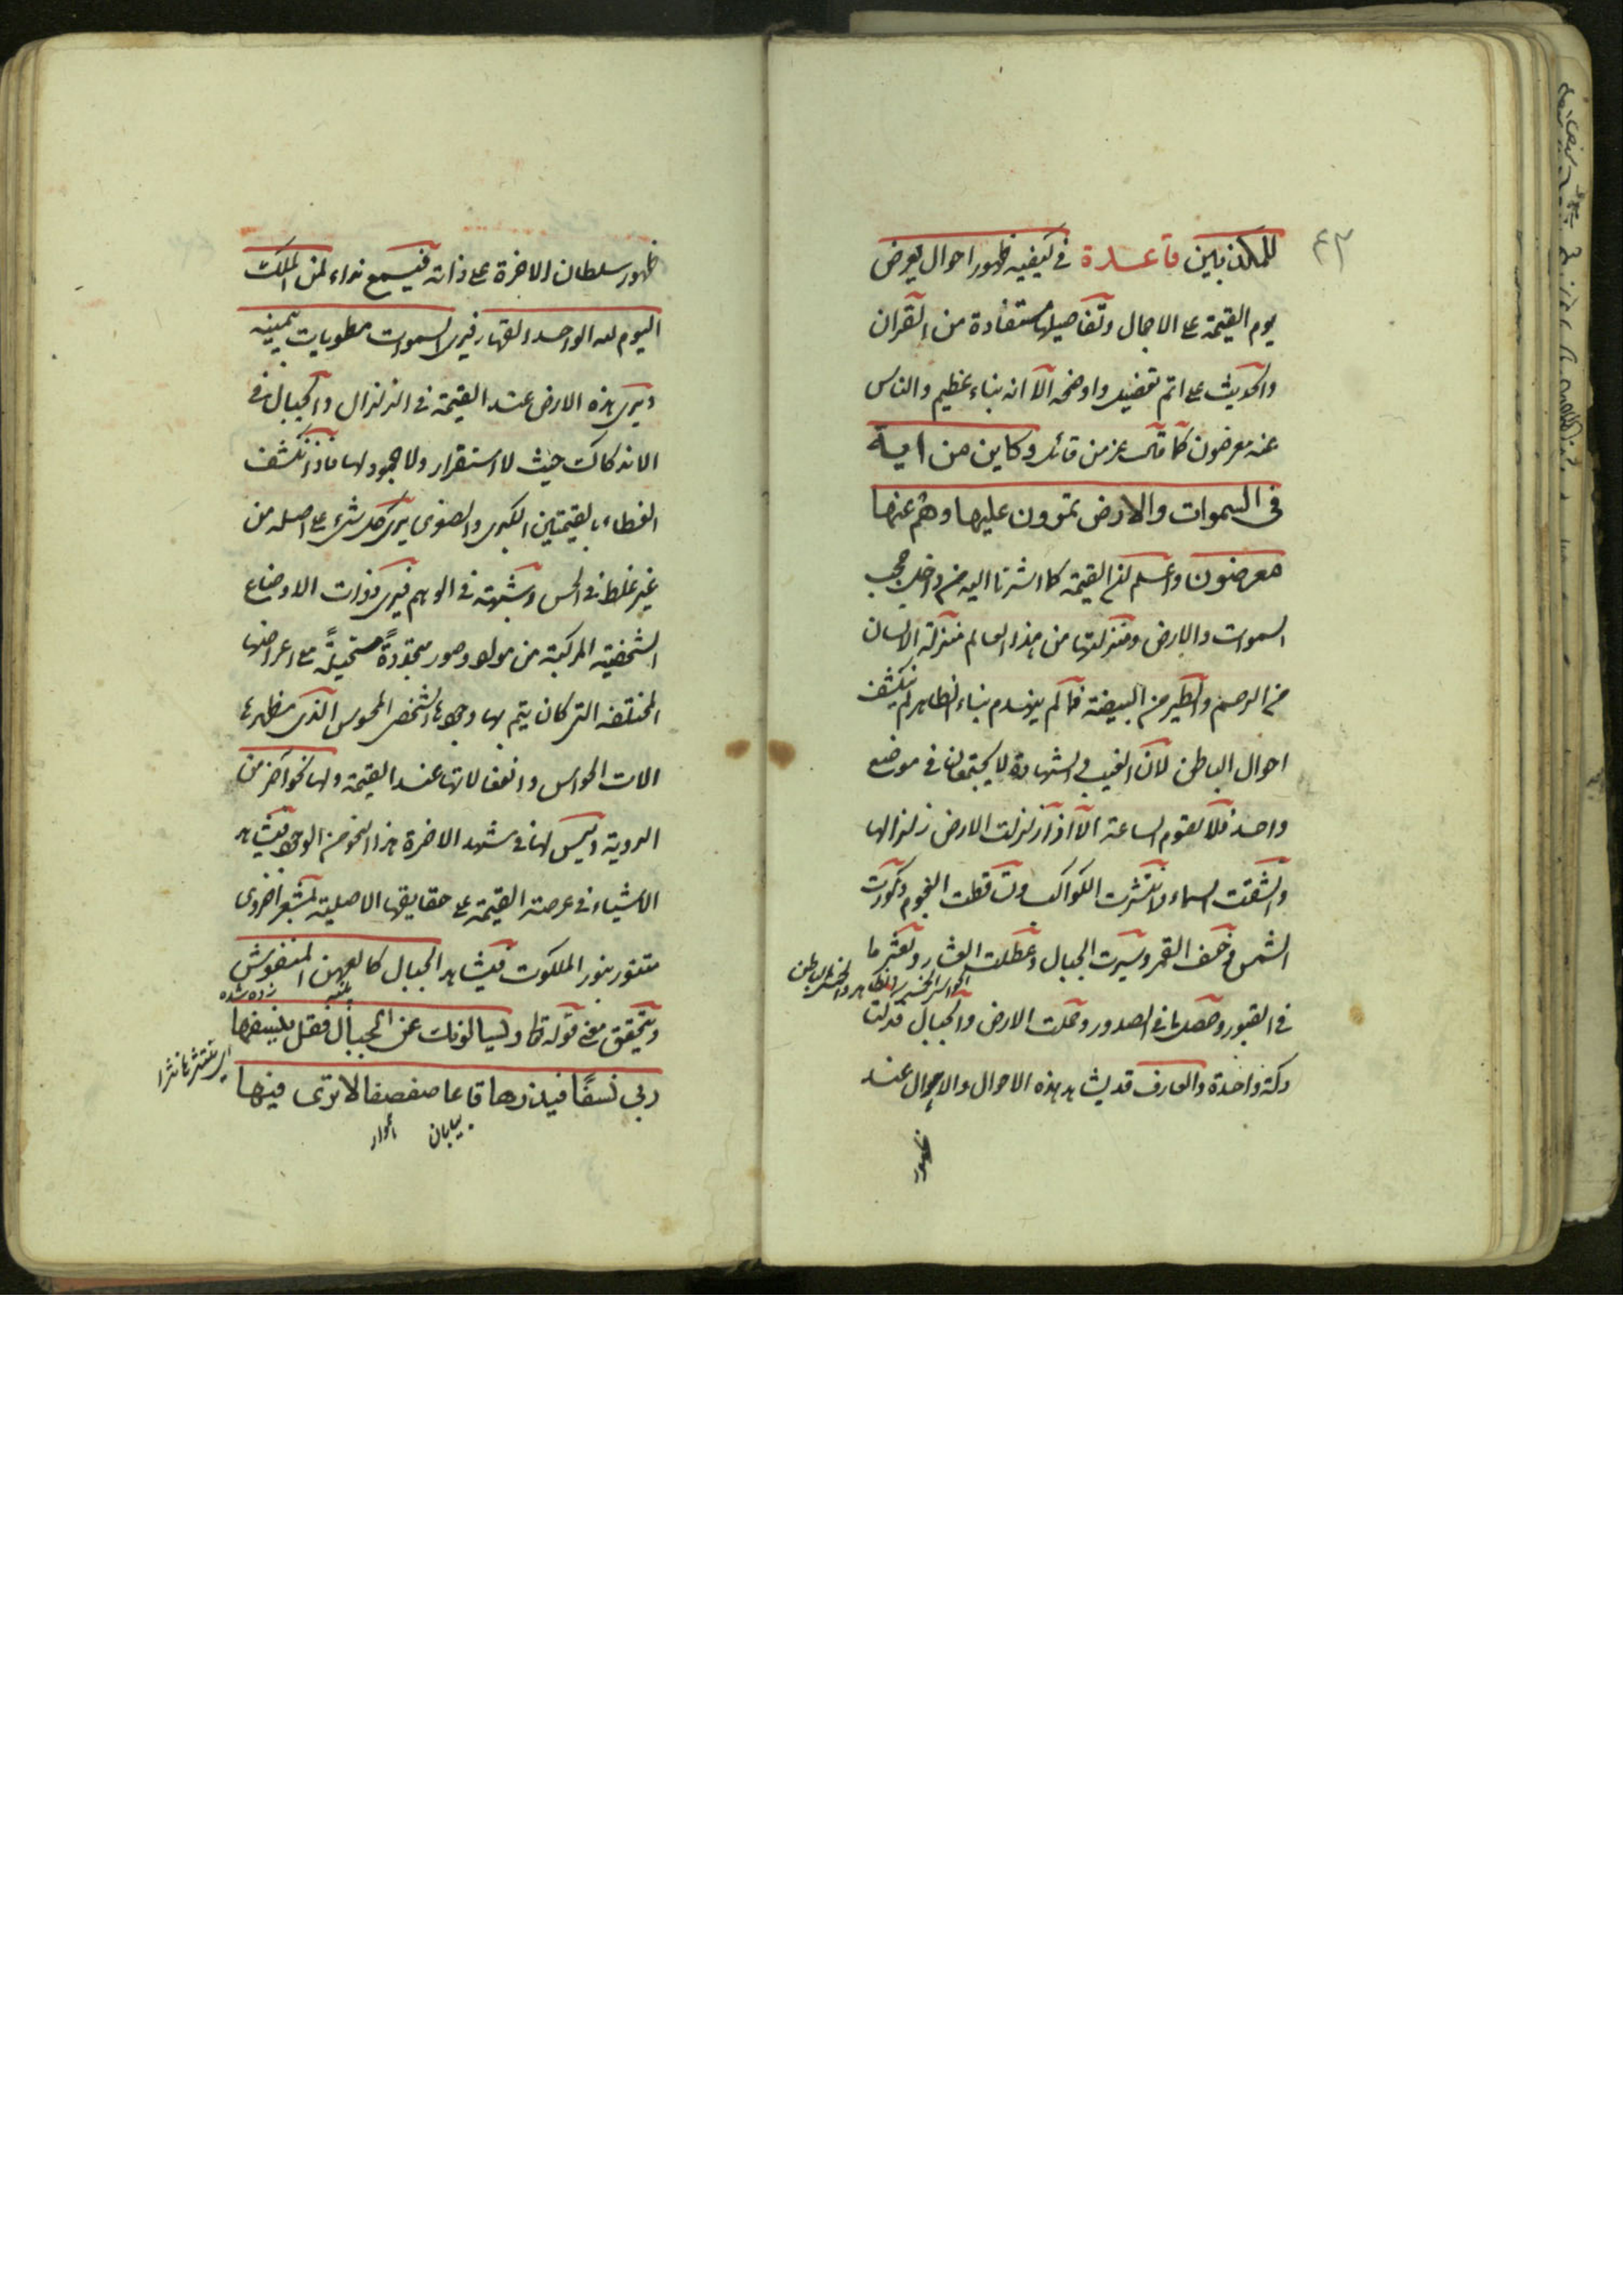 ٤٣
للمكذبين قاعدة في كيفية ظهور احوال يعرض
يوم القيمة على الاجمال وتفاصيلها مستفادة من القران
والحديث على اتم تفصيل واوضحه الا انه بناء عظيم والناس
عنه معرضون كما قال عز من قائل وكاين من اية
في السموات والارض تمرون عليها وهم عنها
معرضون واعلم ان القيمة كما اشرنا اليه من داخل حجب
السموات والارض ومنزلتها من هذا العالم منزلة الانسان
من الرحم والطير من البيضة فما لم ينهدم بناء الظاهر لم ينكشف
احوال الباطن لان الغيب والشهادة لا يجتمعان في موضع
واحد فلا تقوم الساعة الا اذا زلزلت الارض زلزالها
وانشقت السماء وانتثرت الكواكب وتساقطت النجوم وكورت
الشمس وخسف القمر وسيرت الجبال وعطلت العشار وبعثر ما
في القبور وحصل ما في الصدور وحملت الارض والجبال فدكتا
الظاهر والباطن
دكة واحدة والعارف قد يشاهد هذه الاحوال والاهوال عند
ظهور
ظهور سلطان الاخرة على ذاته فيسمع نداء لمن الملك
اليوم لله الواحد القهار فيرى السموات مطويات بيمينه
ويرى هذه الارض عند القيمة في الزلزال والجبال في
الاندكاك حيث لا استقرار ولا جمود لها فاذا انكشف
الغطاء بالقيمتين الكبرى والصغرى يرى كل شيء على اصله من
غير غلط في الحس وشبهة في الوهم فيرى ذوات الاوضاع
الشخصية المركبة من مواد وصور متجددة مستحيلة مع اعراضها
المختلفة التي كان يتم بها وجودها الشخصي المحسوس الذي مظهرها
الات الحواس وانفعالاتها عند القيمة ولها نحو اخر من
الروية وليس لها في مشهد الاخرة هذا النحو من الوجود فيشاهد
الاشياء في عرصة القيمة على حقايقها الاصلية بمشعر اخروى
متنور بنور الملكوت فيشاهد الجبال كالعهن المنفوش
پنبه زده شده
ويتحقق معنى قوله تعالى ويسالونك عن الجبال فقل ينسفها
اي ينتثرها نثرا
ربي نسفا فيذرها قاعا صفصفا لا ترى فيها
بيابان هموار